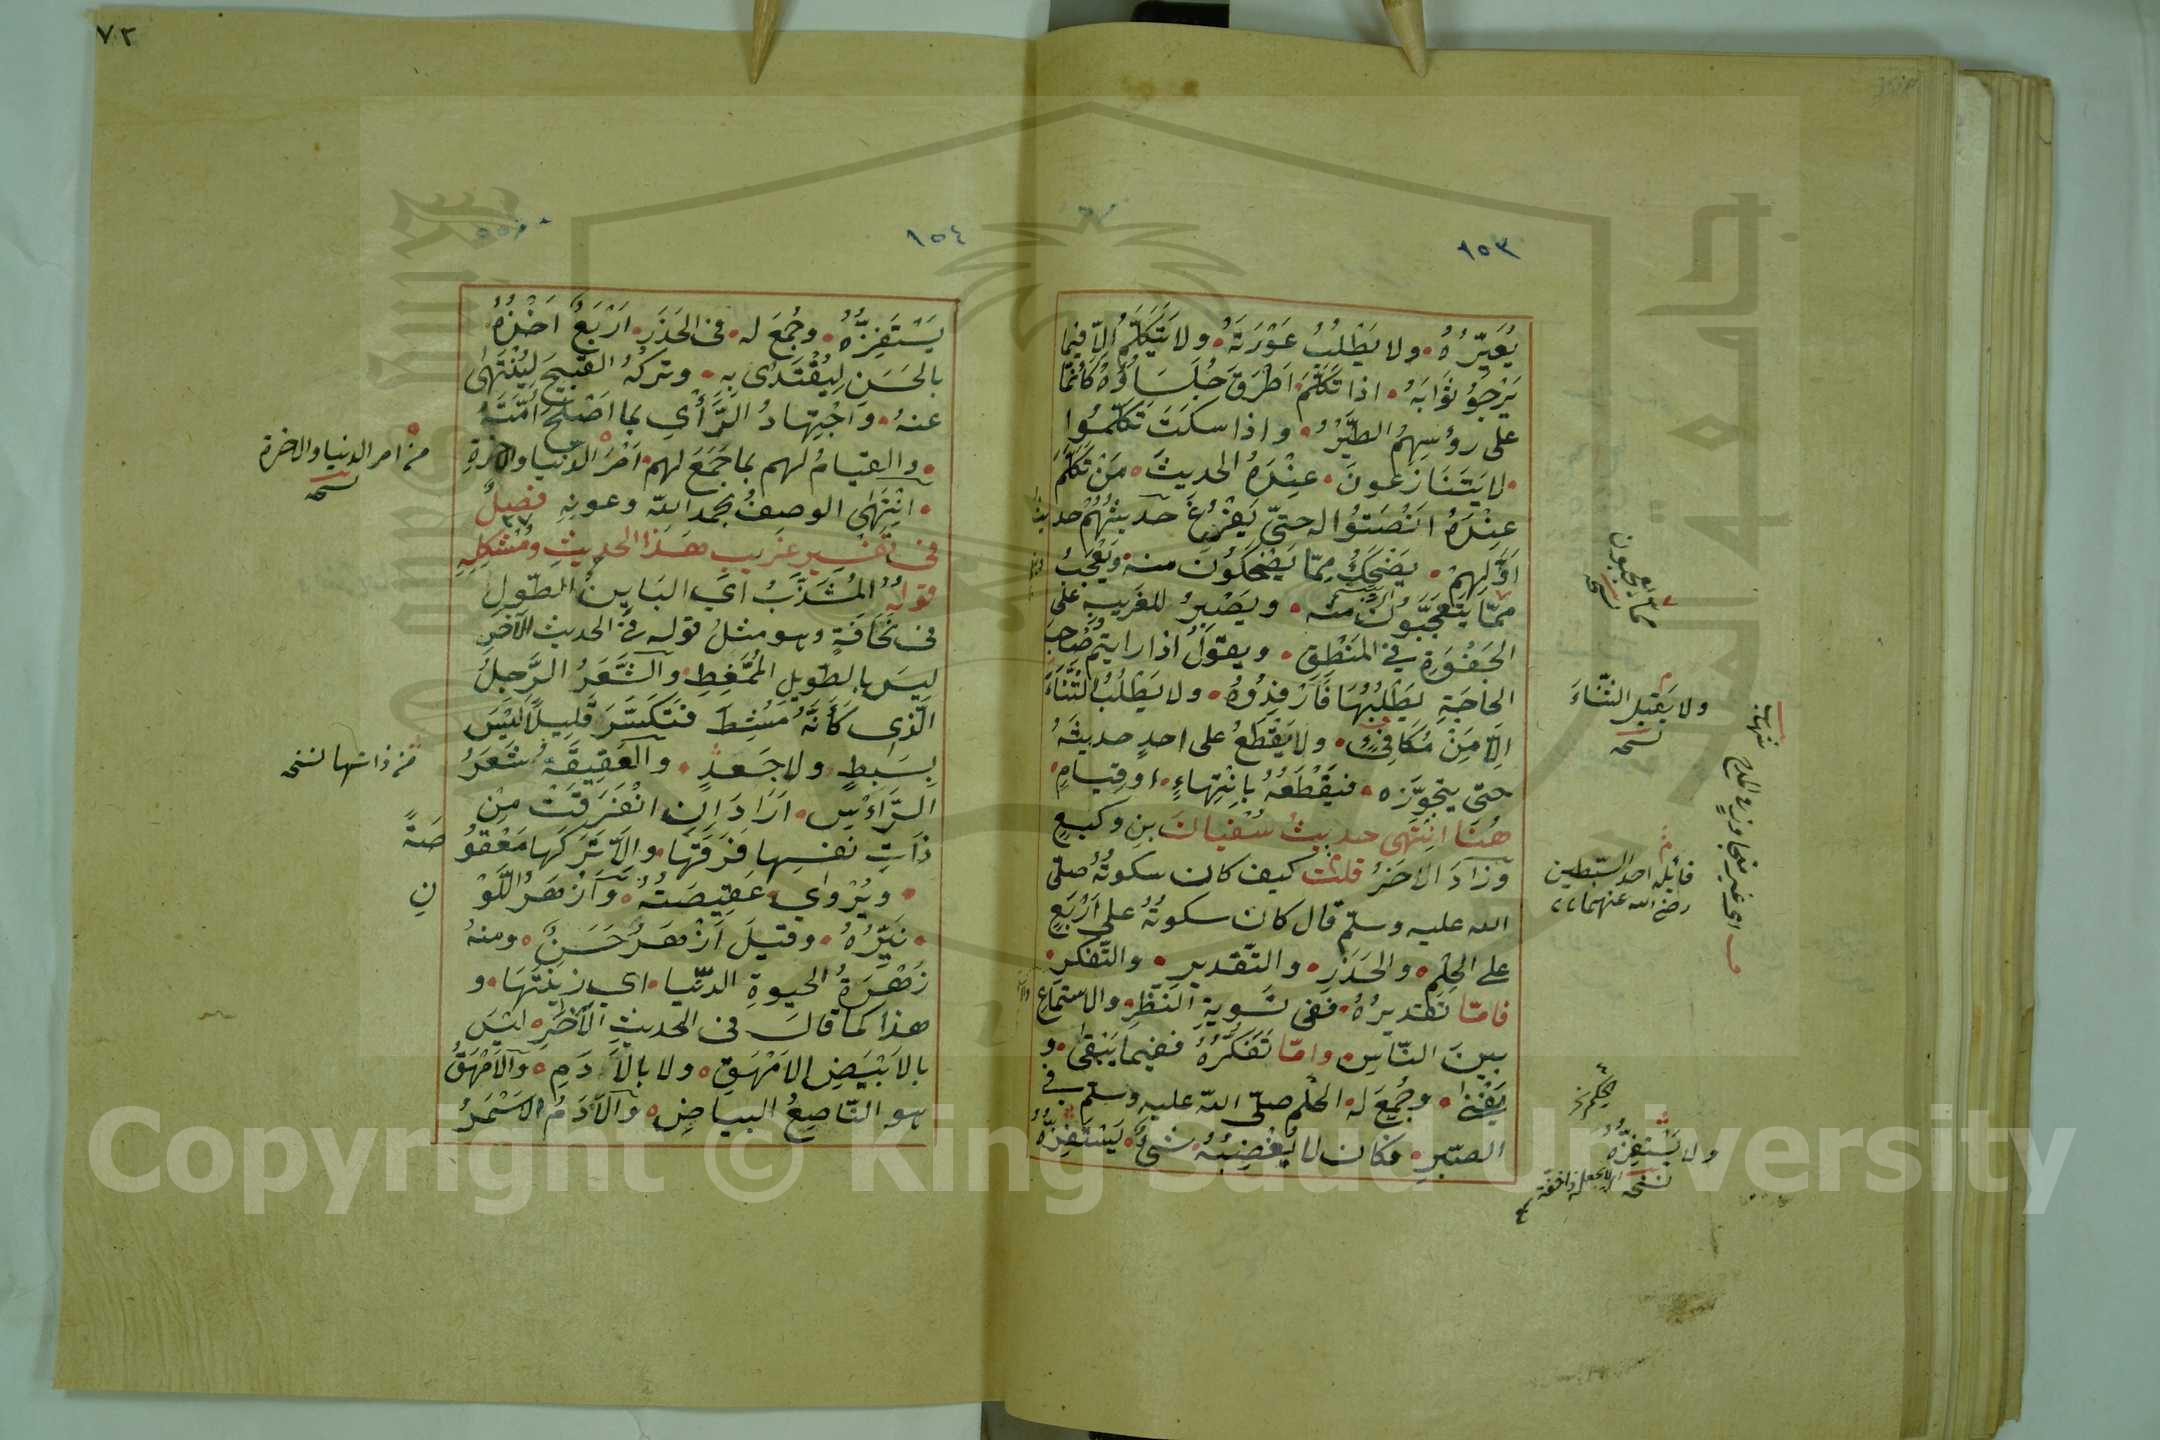 ٧٣
١٥٣
يُعَيِّرُهُ ولا يَطْلُبُ عَوْرَتَهُ ولا يَتَكَلَّمُ الّا فيما
يَرْجُوُ ثَوَابَهُ اذا تَكَلَّمَ اَطْرَقَ جُلَسَاؤُهُ كَأَنَّمَا
على رؤسِهِمُ الطَّيْرُ واذا سكَتَ تَكَلَّمُوا
لا يَتَنَازَعونَ عِنْدَهُ الحديثَ مَنْ تَكَلَّمَ
عِنْدَهُ انْصَتُوا له حتّى يَفْرُغَ حديثُهُمْ حديثُ
اَوَّلِهِمْ يَضْحَكُ مِمّا يَضْحَكُونَ منه ويَعْجَبُ
ممّا يَتَعَجَّبُونَ منه ويَصْبِرُ للغَريبِ على
الجَفْوَةِ في المَنْطِقِ ويقولُ اذا رايتم صَاحِبَ
الحاجَةِ يَطْلُبُهَا فَارْفِدُوُهُ ولا يَطْلُبُ الثَّنَاءَ
الّا مِنْ مُكَافِئٍ ولا يَقْطَعُ على احدٍ حديثَهُ
حتى يتجوّزه فيَقْطَعُهُ بانْتِهاءٍ او قِيامٍ
هُنَا انْتَهَى حديثُ سُفْيانَ بنِ وكيعٍ
وزادَ الآخَرُ قلتُ كيف كان سكوتُهُ صلى
الله عليه وسلم قال كان سكوتُهُ على اَرْبَعٍ
على الحِلْمِ والحَذَرِ والتّقديرِ والتّفكّرِ
فامّا تقديرُهُ ففى تسويةِ النّظرِ والاستماعِ
بينَ النّاسِ وامّا تَفَكُّرُهُ ففيما يَبْقى و
يَفْنى وجُمِعَ له الحلم صلّى الله عليه وسلم فى
الصّبرِ فكان لا يُغْضِبُهُ شئٌ يَسْتَفِزُّهُ
ممّا يعجبون نسخه
ولا يَقبَل الثّناءَ
نسخه
قائله احد السّبطين
رضى الله عنهما
اى غير متجاوز فى المدح
شهاب
ولا يَسْتَفِزُّهُ
نسخه
١٥٤
يَسْتَفِزُّهُ وجُمِعَ له فى الحَذَرِ اَرْبَعٌ اَخْذُهُ
بالحَسَنِ لِيُقْتَدى بِهِ وتركُهُ القَبيحَ لِيُنْتَهى
عنهُ واجْتِهادُ الرَّأْيِ بما اَصْلَحَ اُمَّتَهُ
والقيامُ لهم بما جَمَعَ لهم اَمْرَ الدنيا والآخرةِ
انْتَهى الوصفُ بحمد الله وعونِهِ فصلٌ
فى تفسير غريبِ هذا الحديثِ ومُشْكِلِهِ
قوله المُشَذَّبُ اَىِ البَايِنُ الطّولِ
فى نَحَافَةٍ وهو مثلُ قوله فى الحديث الآخر
ليسَ بالطّويلِ المُمَّغِطِ والشَّعَرُ الرَّجِلُ
الّذى كَاَنَّهُ مُشِطَ فتكسَّرَ قليلًا ليْسَ
بسَبِطٍ ولا جَعْدٍ والعَقِيقَةُ شَعَرُ
الرَّاْسِ ارَادَ اِنِ انْفَرَقَتْ مِنْ
ذَاتِ نفسِها فرَقَها والّا تَرَكَها مَعْقُوُصَةً
ويُرْوى عَقِيصَتُهُ وَاَزْهَرُ اللّوْنِ
نَيِّرُهُ وقيلَ اَزْهَرُ حَسَنٌ ومنهُ
زَهْرَةُ الحيوةِ الدّنيا اى زينَتُهَا و
هذا كما قالَ فى الحديثِ الآخَرِ ليْسَ
بالاَبْيَضِ الاَمْهَقِ ولا بالآدَمِ والاَمْهَقُ
هو النّاصِعُ البياضِ والآدَمُ الاَسْمَرُ
من امر الدنيا والاخرة
نسخه
من ذاتها نسخه
Copyright © King Saud University